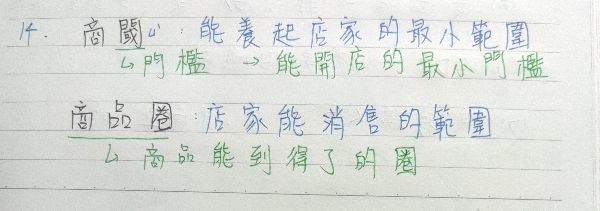 14. 商閾小：能養起店家的最小範圍
↳門檻 → 能開店的最小門檻
商品圈：店家能消售的範圍
↳商品能到得了的圈